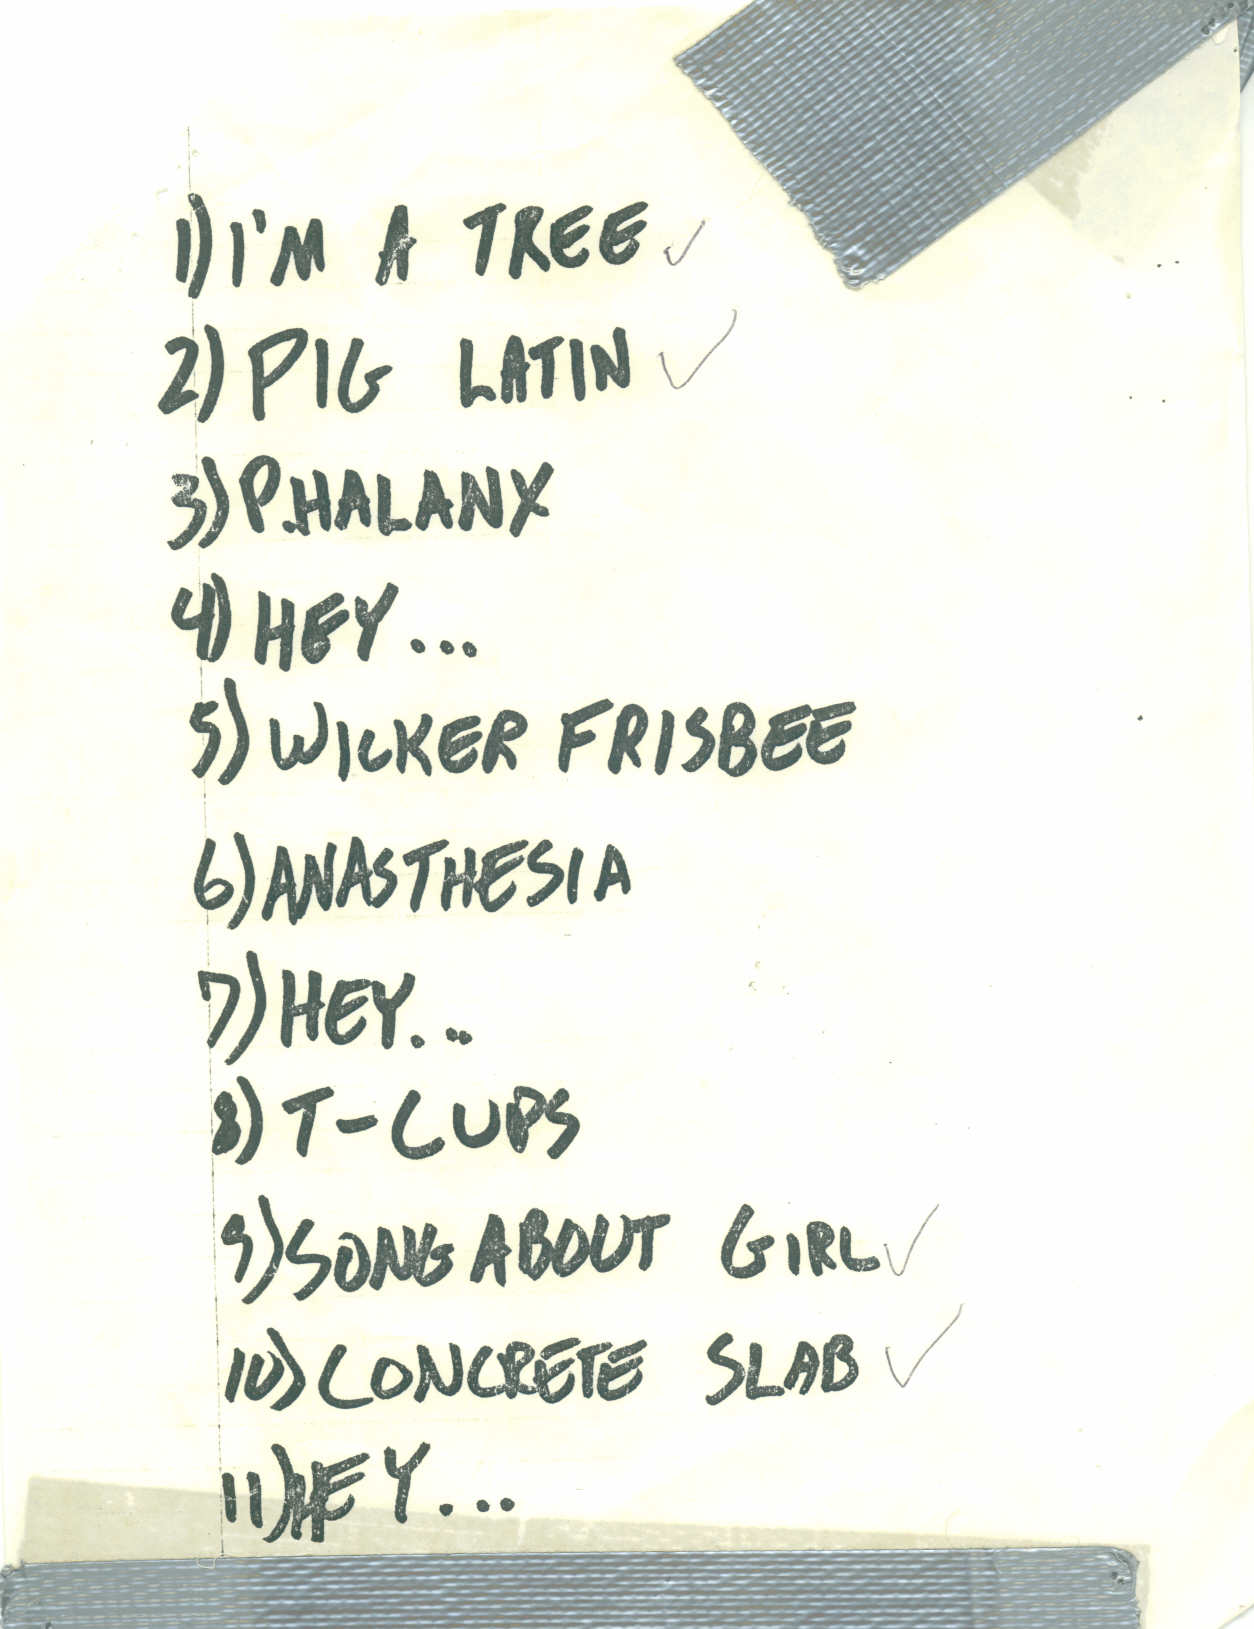 1) I'M A TREE ✓
2) PIG LATIN ✓
3) P.HALANX
4) HEY...
5) WICKER FRISBEE
6) ANASTHESIA
7) HEY...
8) T-CUPS
9) SONG ABOUT GIRL ✓
10) CONCRETE SLAB ✓
11) HEY...